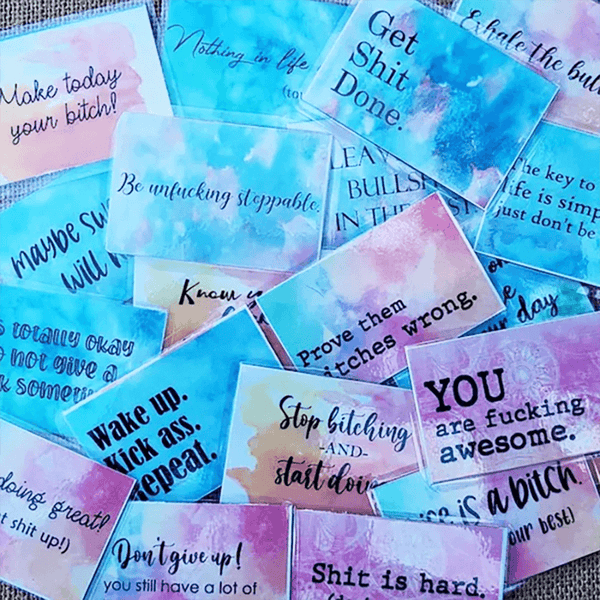 Make today
your bitch!
Nothing in life
Get
Shit
Done.
Exhale the
Be unfucking stoppable.
BULLSH
IN THE
The key to
life is
just don't be
maybe
will
Know
Prove them
bitches wrong.
day
totally okay
not give a
Wake up.
Kick ass.
Repeat.
Stop bitching
-AND-
start
YOU
are fucking
awesome.
is a bitch.
your best)
doing great!
shit up!)
Don't give up!
you still have a lot of
Shit is hard.